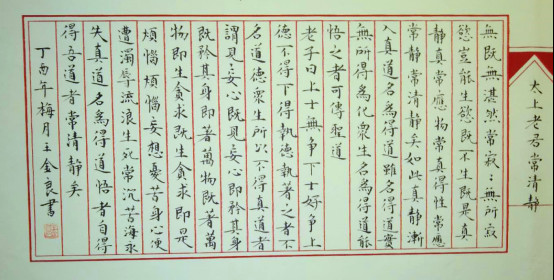 太上老君常清靜
無既無湛然常寂〻無所寂
慾豈能生慾既不生即是真
靜真常應物常真得性常應
常靜常清靜矣如此真靜漸
入真道名為得道雖名得道實
無所得為化眾生名為得道能
悟之者可傳聖道
老子曰上士無爭下士好爭上
德不得下得執德執著之者不
名道德眾生所以不得真道者
謂見妄心既見妄心即矜其身
既矜其身即著萬物既著萬
物即生貪求既生貪求即是
煩惱煩惱妄想憂苦身心便
遭濁辱流浪生死常沉苦海永
失真道名為得道悟者自得
得吾道者常清靜矣
丁酉年梅月王金良書